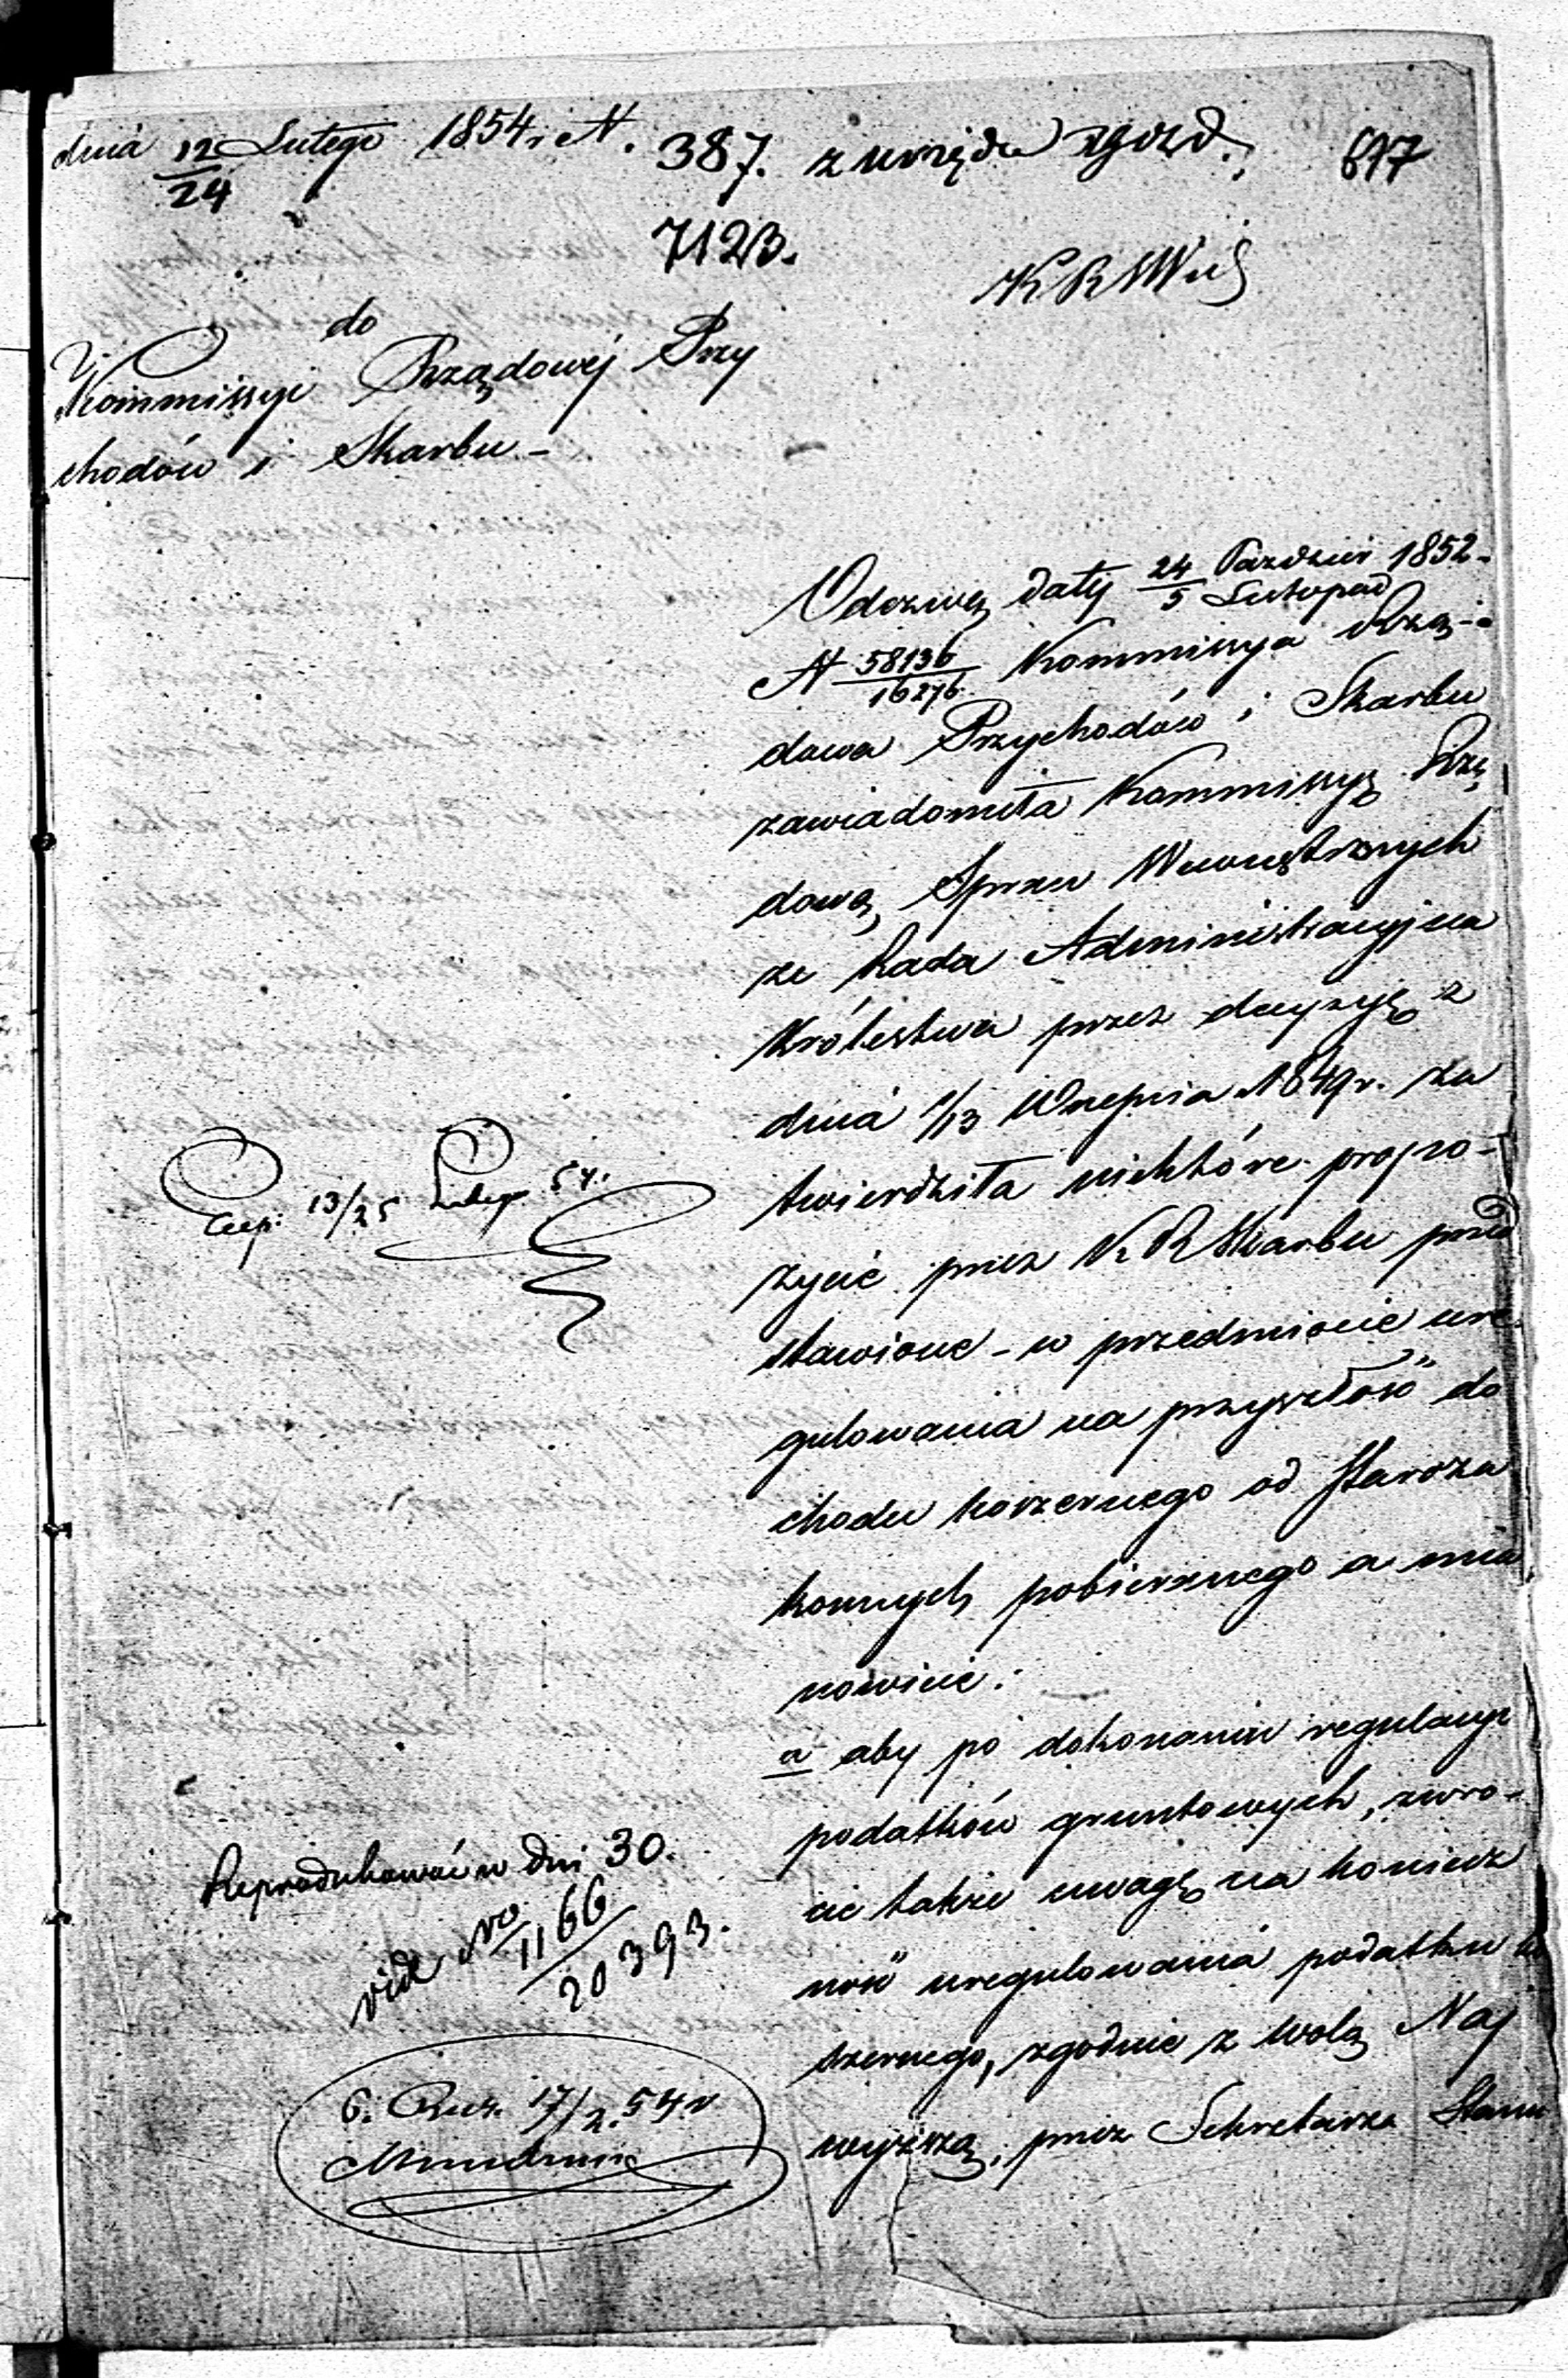 dnia 12/24 Lutego 1854 r. N. 387. z urzędu 617
7123.
K R S W i D
do
Kommissyi Rządowéj Przy
chodów i Skarbu -
Odezwą daty 24 Paździer / 5 Listopad 1852.
N 58136/16276. Kommissya Rzą-
dowa Przychodów i Skarbu
zawiadomiła Kommissyę Rzą
dową Spraw Wewnętrznych
że Rada Administracyjna
Królestwa przez decyzyę z
dnia 1/13 Września 1849 r. za
twierdziła niektóre propo-
zycie przez K. R. Skarbu przed
stawione - w przedmiocie ure-
gulowania na przyszłość do
chodu koszernego od Staroza
konnych pobieranego a mia
nowicie:
a aby po dokonaniu regulacyi
podatków gruntowych, zwró-
cić także uwagę na koniecz
ność uregulowania podatku ko
szernego, zgodnie z wolą Naj
wyższą, przez Sekretarza Stanu
Exp: 13/25 Lutego 54.
Reprodukować w dni 30.
vide No 1166/20393.
17/2. 54 r